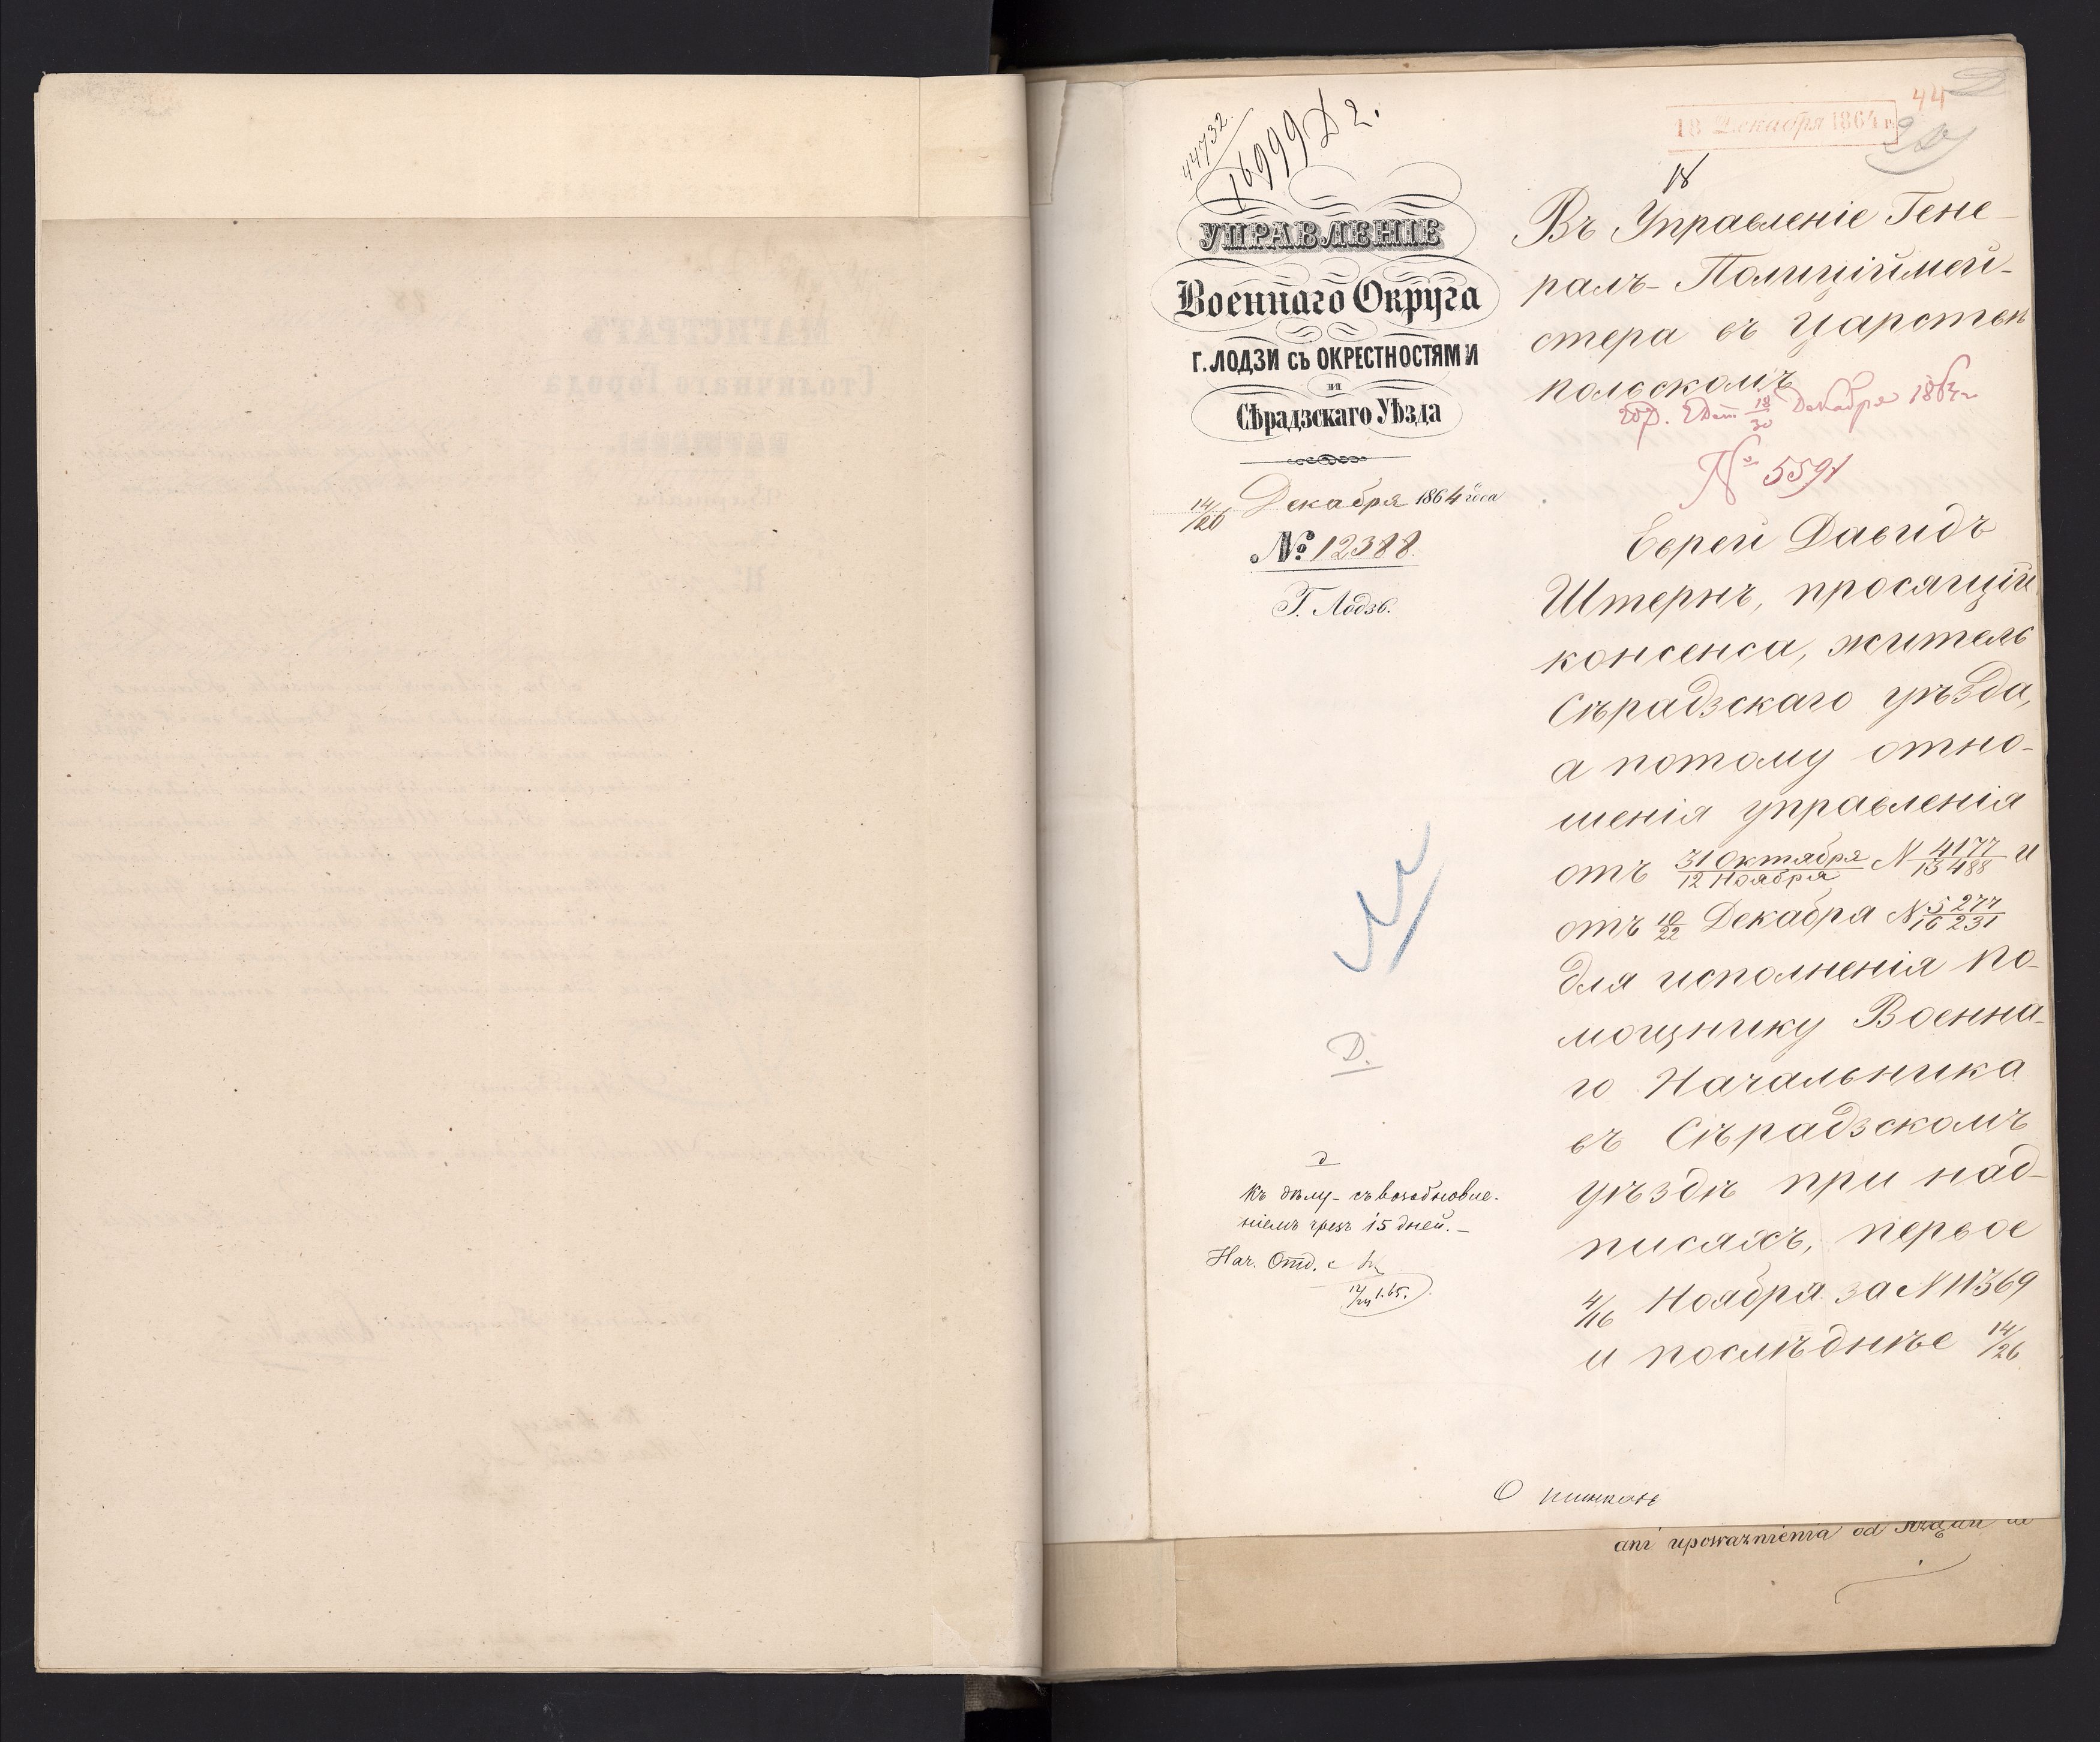 44732.
16999 Д 2.
44
18 Декабря 1864 г.
18
УПРАВЛЕНІЕ
Военнаго Округа
Г. ЛОДЗИ СЪ ОКРЕСТНОСТЯМИ
и
Сѣрадзскаго Уѣзда
14/26 Декабря 1864 года
№ 12388.
Г. Лодзь.
Въ Управленіе Гене-
ралъ-Полиціймей-
стера въ Царствѣ
польскомъ
18/30 Декабря 1864 г
№ 5591
Еврей Давидъ
Штернъ, просящій
консенса, житель
Сѣрадзскаго уѣзда,
а потому отно-
шенія управленія
отъ 31 Октября/12 Ноября N 4177/13488 и
отъ 10/22 Декабря N 5277/16231
для исполненія по-
мощнику Военна-
го Начальника
въ Сѣрадзскомъ
уѣздѣ при над-
писяхъ, первое
4/16 Ноября за N 11369
и послѣднѣе 14/26
Д.
Къ дѣлу - съ возобновле-
ніемъ чрезъ 15 дней.-
Нач. Отд.
О
ani upoważnienia od Rządu